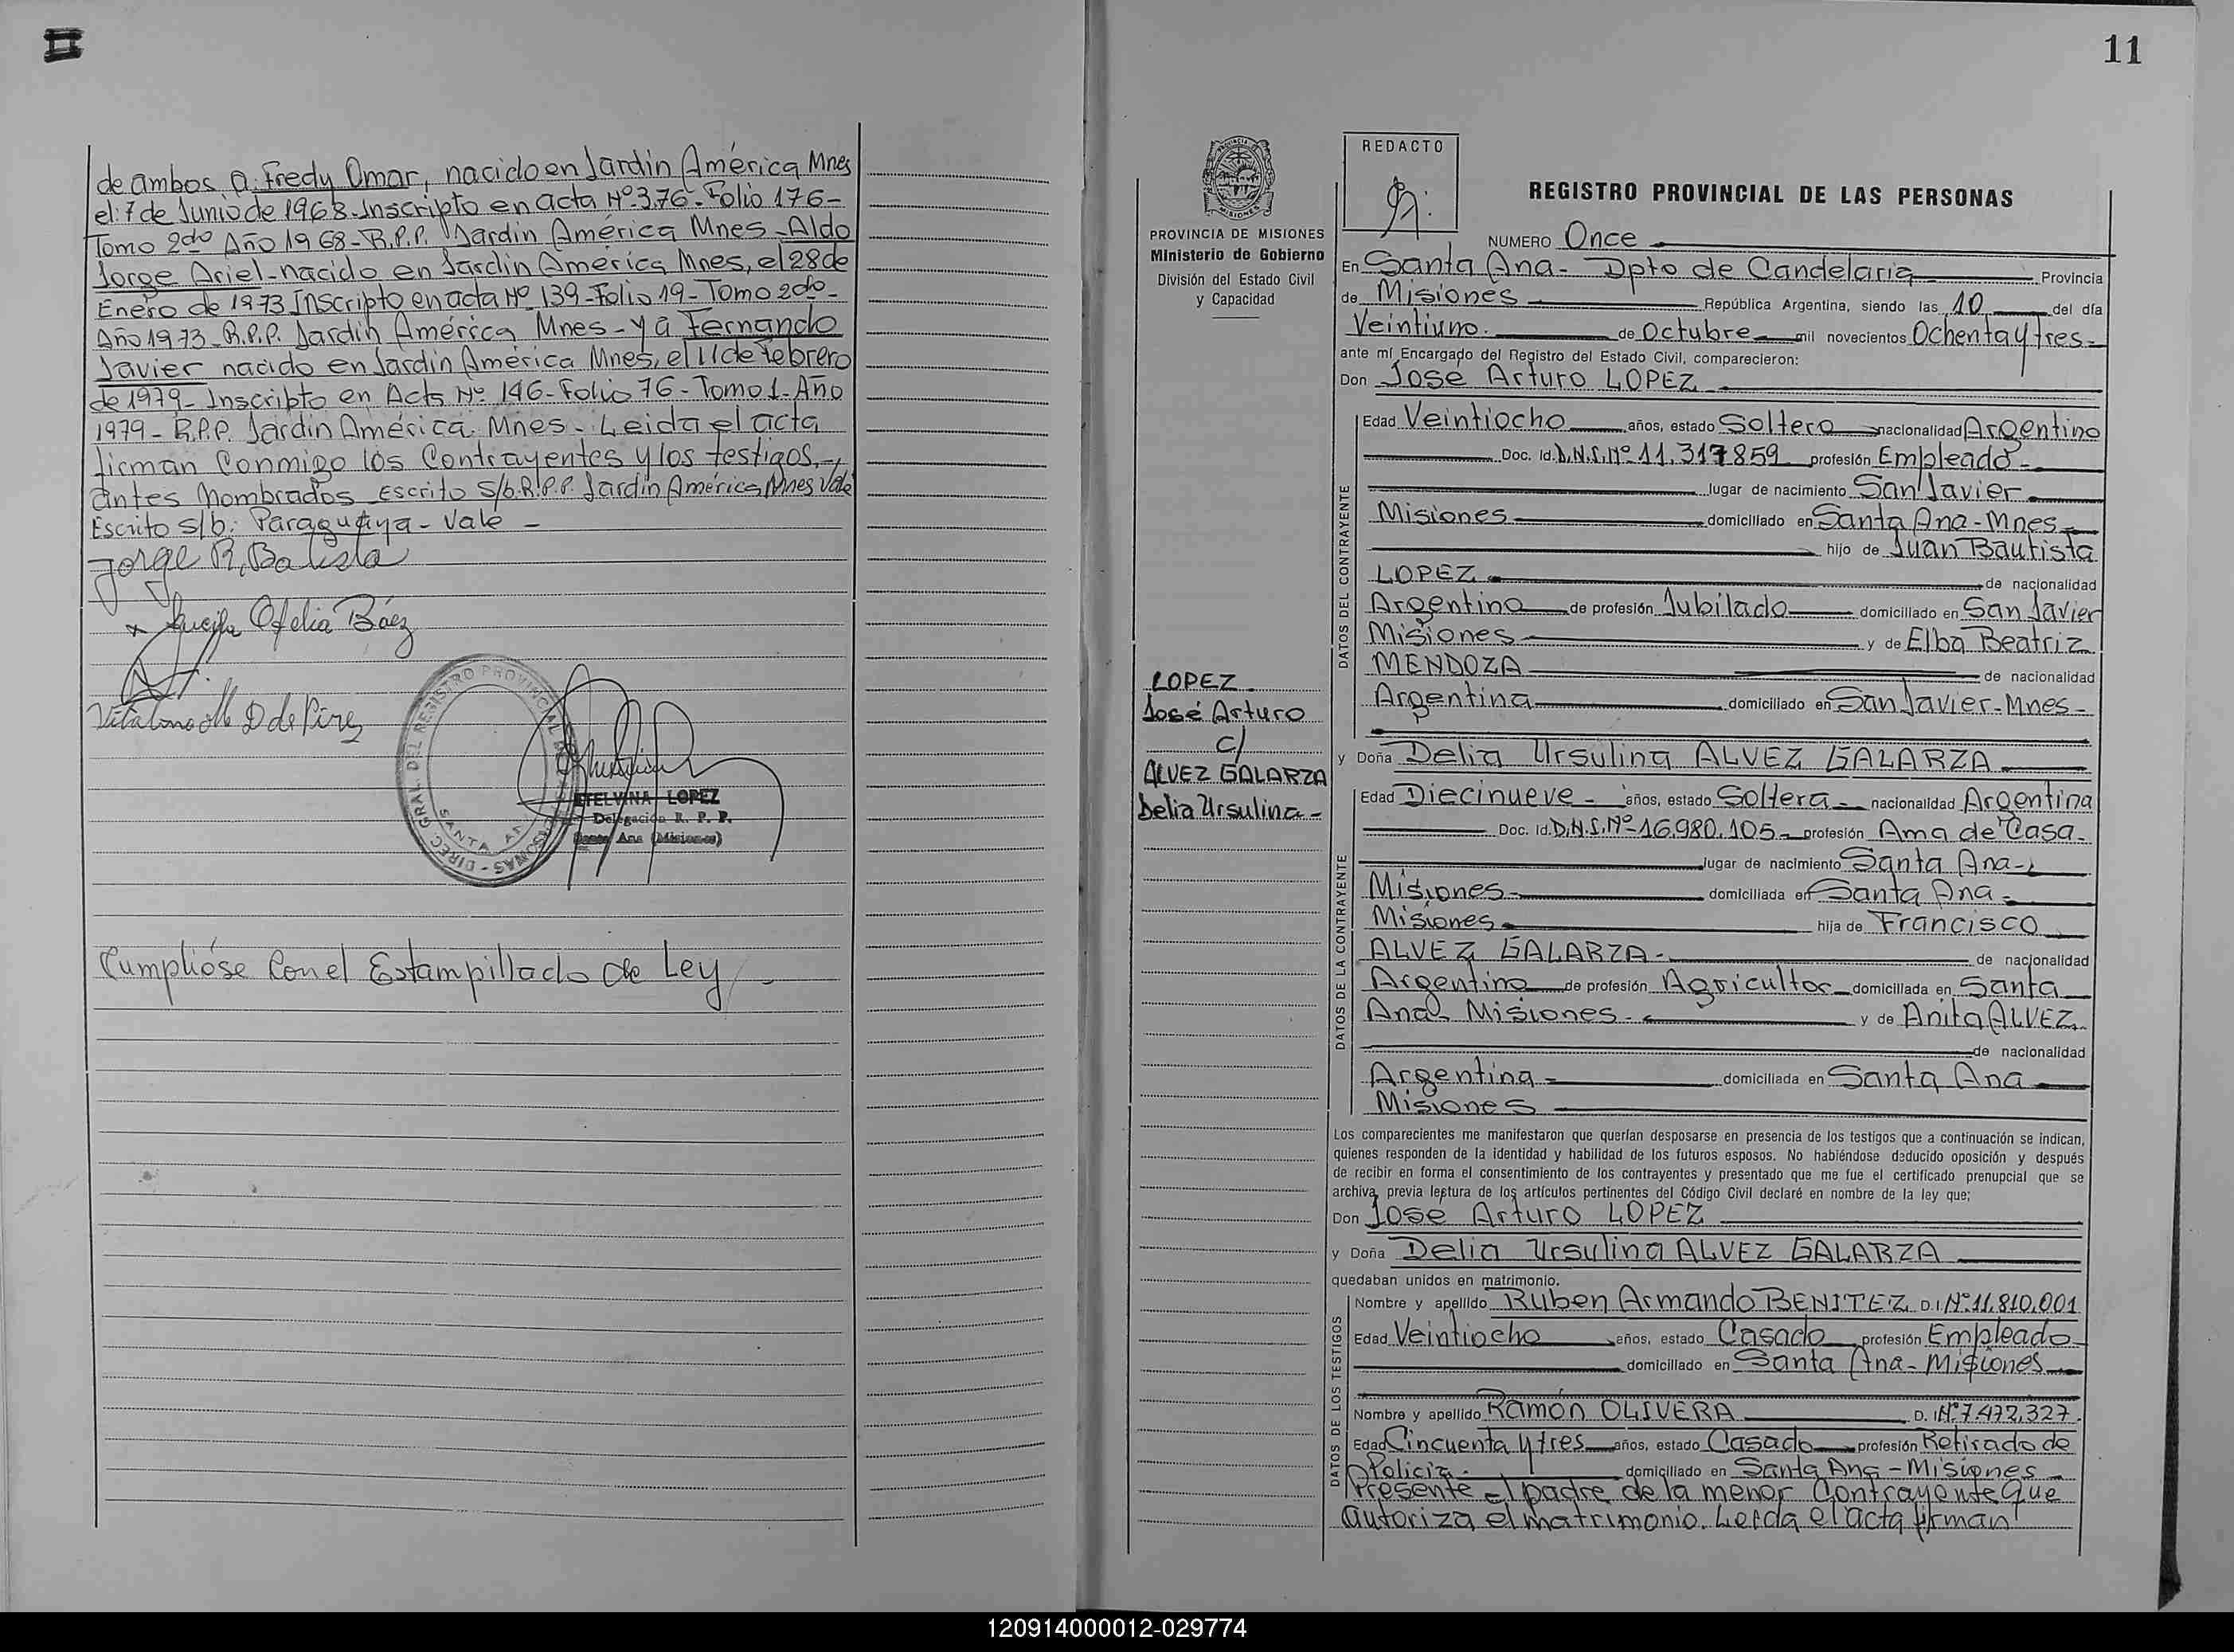 de ambos a: Fredy Omar, nacido en Jardin América Mnes
el: 7 de Junio de 1968-Inscripto en acta Nº-376-Folio 176-
Tomo 2do Año 1968-R.P.P. Jardin América Mnes-Aldo
Jorge Ariel-nacido en Jardin América Mnes, el 28 de
Enero de 1973 Inscripto en acta Nº 139-Folio 19-Tomo 2do-
Año 1973-R.P.P. Jardin América Mnes-y a Fernando
Javier nacido en Jardin América Mnes, el 11 de Febrero
de 1979-Inscripto en Acta Nº 146-Folio 76-Tomo 1-Año
1979-R.P.P. Jardin América. Mnes-Leida el acta
firman Conmigo los Contrayentes y los testigos,
antes Nombrados Escrito s/b. R.P.P. Jardin América Mnes Vale
Escrito s/b: Paraguaya-Vale-
Jorge R. Batista
Ofelia Báez
D de Pire
DIREC. GRAL. DEL REGISTRO PROVINCIAL DE LAS PERSONAS
SANTA ANA
ETELVINA LOPEZ
Delegación R. P. P.
Santa Ana (Misiones)
Cumplióse Con el Estampillado de Ley-
11
PROVINCIA DE MISIONES
Ministerio de Gobierno
División del Estado Civil
y Capacidad
LOPEZ
José Arturo
c/
ALVEZ GALARZA
Delia Ursulina-
REDACTO
REGISTRO PROVINCIAL DE LAS PERSONAS
NUMERO Once
En Santa Ana- Dpto de Candelaria Provincia
de Misiones República Argentina, siendo las 10 del día
Veintiuno. de Octubre mil novecientos Ochenta y tres-
ante mí Encargado del Registro del Estado Civil, comparecieron:
Don José Arturo LOPEZ
DATOS DEL CONTRAYENTE
Edad Veintiocho años, estado Soltero nacionalidad Argentino
Doc. Id. D.N.I. Nº 11.317859 profesión Empleado-
lugar de nacimiento San Javier
Misiones domiciliado en Santa Ana-Mnes
hijo de Juan Bautista
LOPEZ de nacionalidad
Argentino de profesión Jubilado domiciliado en San Javier
Misiones y de Elba Beatriz
MENDOZA de nacionalidad
Argentina domiciliado en San Javier-Mnes-
y Doña Delia Ursulina ALVEZ GALARZA
DATOS DE LA CONTRAYENTE
Edad Diecinueve- años, estado Soltera- nacionalidad Argentina
Doc. Id. D.N.I. Nº-16.980.105- profesión Ama de Casa-
lugar de nacimiento Santa Ana-
Misiones- domiciliada en Santa Ana-
Misiones hija de Francisco
ALVEZ GALARZA- de nacionalidad
Argentino de profesión Agricultor domiciliada en Santa
Ana Misiones- y de Anita ALVEZ
de nacionalidad
Argentina- domiciliada en Santa Ana
Misiones
Los comparecientes me manifestaron que querían desposarse en presencia de los testigos que a continuación se indican,
quienes responden de la identidad y habilidad de los futuros esposos. No habiéndose deducido oposición y después
de recibir en forma el consentimiento de los contrayentes y presentado que me fue el certificado prenupcial que se
archiva, previa lectura de los artículos pertinentes del Código Civil declaré en nombre de la ley que;
Don José Arturo LOPEZ
y Doña Delia Ursulina ALVEZ GALARZA
quedaban unidos en matrimonio.
DATOS DE LOS TESTIGOS
Nombre y apellido Ruben Armando BENITEZ D. I. Nº 11.810.001
Edad Veintiocho años, estado Casado profesión Empleado
domiciliado en Santa Ana-Misiones
Nombre y apellido Ramón OLIVERA D. I. Nº 7.472.327
Edad Cincuenta y tres años, estado Casado profesión Retirado de
Policia- domiciliado en Santa Ana-Misiones
Presente el padre de la menor Contrayente que
autoriza el matrimonio. Leida el acta firman
120914000012-029774